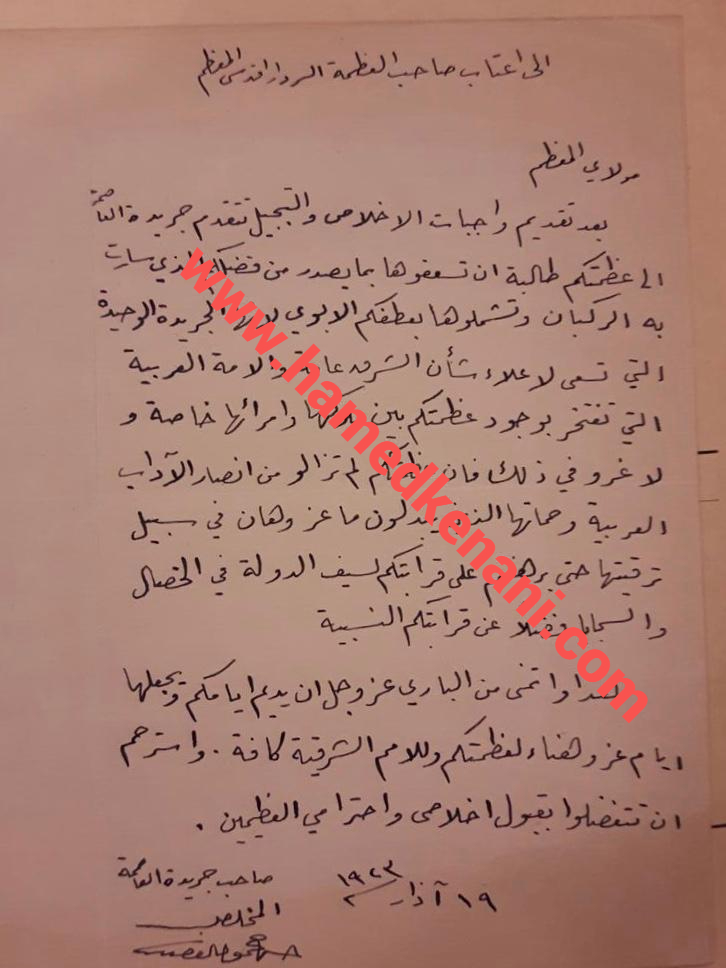 الى اعتاب صاحب العظمة السردار اقدس المعظم
مولاي المعظم
بعد تقديم واجبات الاخلاص والتبجيل تتقدم جريدة العاصمة
الى عظمتكم طالبة ان تسعفوها بما يصدر من فضلكم الذي سارت
به الركبان وتشملوها بعطفكم الابوي لانها الجريدة الوحيدة
التي تسعى لاعلاء شأن الشرق عامة والامة العربية
التي تفتخر بوجود عظمتكم بين ملوكها وامرائها خاصة و
لا غرو في ذلك فان عظمتكم لم تزالو من انصار الآداب
العربية وحماتها الذين يبذلون ما عز وهان في سبيل
ترقيتها حتى على قرابتكم لسيف الدولة في الخصال
والسجايا فضلا عن قرابتكم النسبية
هذا واتمنى من الباري عز وجل ان يديم ايامكم ويجعلها
ايام عز وهناء لعظمتكم وللامم الشرقية كافة . واسترحم
ان تتفضلوا بقبول اخلاصي واحترامي العظيمين .
صاحب جريدة العاصمة
١٩ آذار ١٩٢٣
المخلص
www.hamedkenani.com